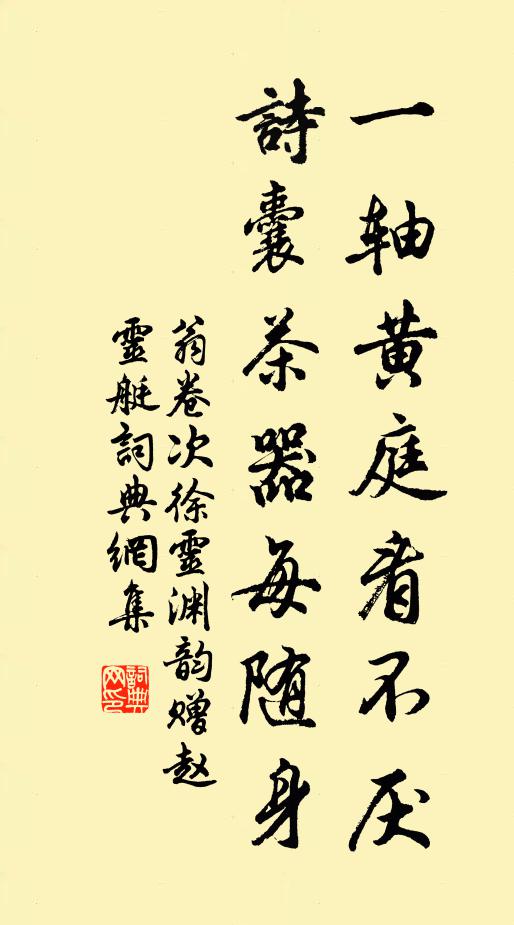 一轴黄庭看不厌
詩囊茶器每随身
翁卷次徐靈渊韵赠赵
靈艇詞典網集
詞典网印